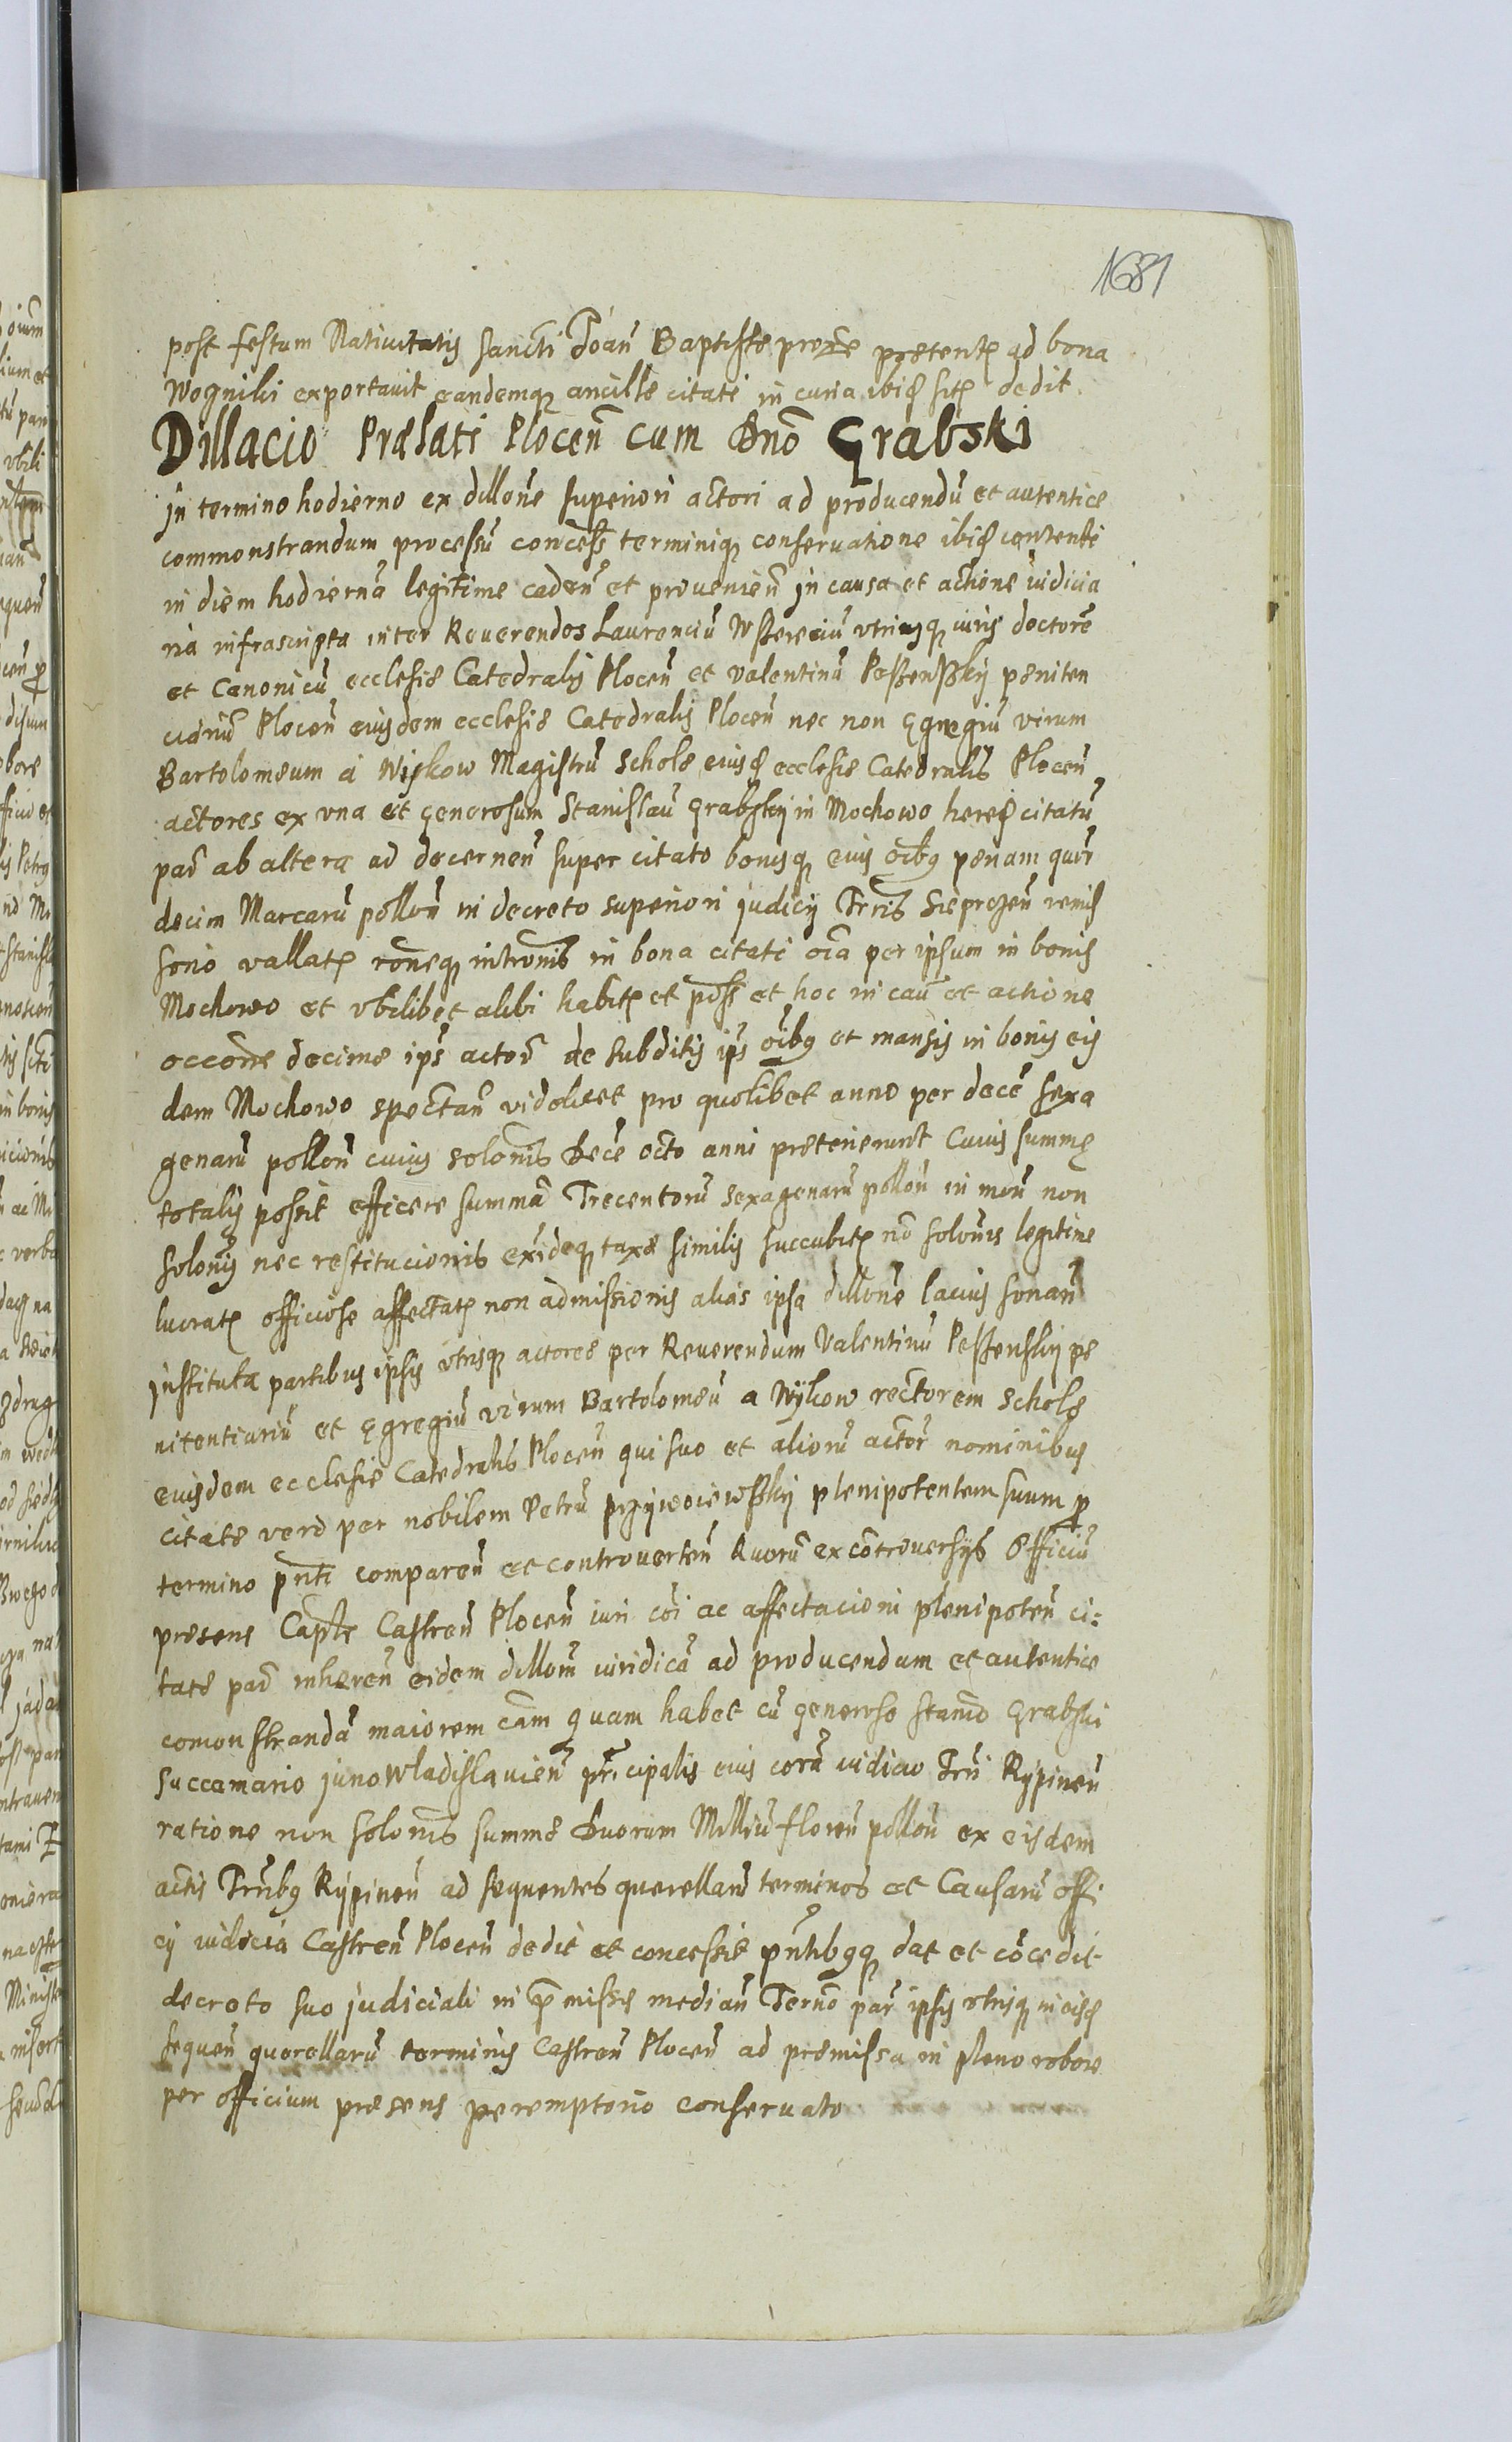 1681
post festum Natiuitatis sancti Joañ Baptistæ proxe præterit ad bona
Wogniki exportauit eandemq ancillæ citati in curia ibid sit dedit.
Dillacio Prælati Plocen̄ cum Dn̄o Grabski
Jn termino hodierno ex dillon̄e superiori actori ad producendū et autentice
commonstrandum processū concess terminiq conseruatione ibid contenti
in diem hodiernā legitime caden̄ et prouenien̄ jn causa et actione iudicia
ria infrascripta inter Reuerendos Laurenciū utriusq iuris doctorē
et Canonicū ecclesiæ Catedralis Plocen̄ et Valentinū pæniten
ciariū Plocen̄ eiusdem ecclesiæ Catedralis Plocen̄ nec non Egregiū virum
Bartolomeum a Wijkow Magistrū scholæ eiusd ecclesiæ Catedralis Plocen̄
actores ex vna et generosum Stanislaū Grabskij in Mochowo hered citatū
par ab altera ad decernen̄ super citato bonisq eius oibq penam quin
decim Marcarū pollon̄ in decreto superiori judicij Trris Sieprczen̄ remis
sorio vallat ron̄eq intromis in bona citati oia per ipsum in bonis
Mochowo et vbilibet alibi habit et poss et hoc in cau et actione
occon̄e decimæ ips actor de subditis ips oibq et mansis in bonis eis
dem Mochowo spectan̄ videlicet pro quolibet anno per decē sexa
genarū pollon̄ cuius solonis decē octo anni præterierunt Cuius summę
totalis possit efficere summā Trecentorū sexagenarū pollon̄ in mon̄ non
solonis nec restitucionis exideq taxæ similis succubit nō solonis legitime
lucrat officiose affectat non admissionis alias ipsa dillon̄e lacius sonan̄
jnstituta partibus ipsis vtrisq actores per Reuerendum Valentinū pe
nitentiariū et Egregiū virum Bartolomeū a Wijkow rectorem scholę
eiusdem ecclesiæ Catedralis Plocen̄ qui suo et aliorū actor nominibus
citatæ verò per nobilem Petrū plenipotentem suum p
termino pn̄ti comparen̄ et controuerten̄ Quorū ex cōtrouersijs Officiū
præsens Capte Castren̄ Plocen̄ iuri cōi ac affectacioni plenipoten̄ ci:
tatæ par inheren̄ eidem dillon̄ iuridicā ad producendum et autentice
comonstrandā maiorem cām quam habet cū generoso Stan̄o Grabski
Succamario junowladislauien̄ principalis eius corā iudicio Trri Rypinen̄
ratione non solonis summæ duorum Milliū floren̄ pollon̄ ex eisdem
actis Trribq Rypinen̄ ad sequentes querellarū terminos et Causarū offi
cij iudicia Castren̄ Plocen̄ dedit et concessit pn̄tibqq dat et cōcedit
decreto suo judiciali in præmissis median̄ Terno par ipsis vtrisq in eisd
sequen̄ querellarū terminis Castren̄ Plocen̄ ad præmissa in pleno robore
per officium præsens peremptorio conseruato